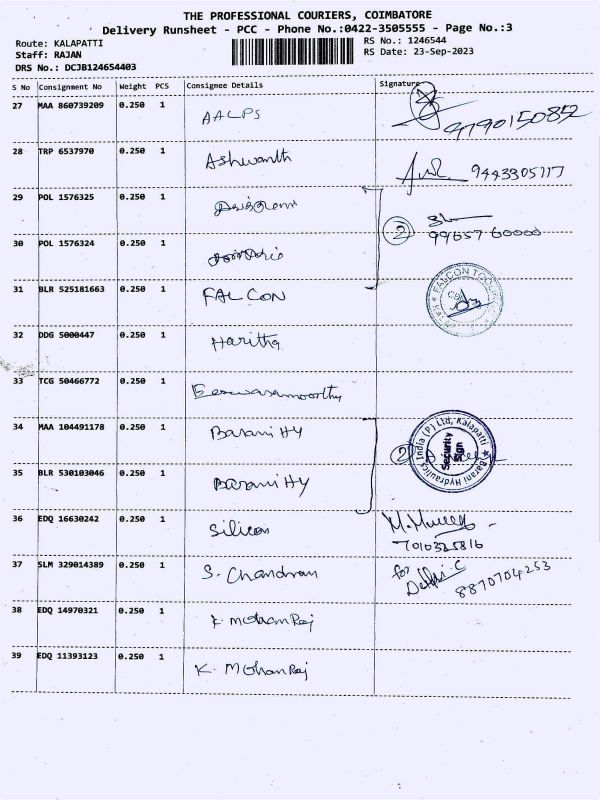 THE PROFESSIONAL COURIERS, COIMBATORE
Delivery Runsheet - PCC - Phone No.:0422-3505555 - Page No.:3
Route: KALAPATTI
RS No.: 1246544
Staff: RAJAN
RS Date: 23-Sep-2023
DRS No.: DCJB124654403
S No Consignment No Weight PCS Consignee Details Signature
27 MAA 860739209 0.250 1 AALPS
28 TRP 6537970 0.250 1 Ashwanth 9443305117
29 POL 1576325 0.250 1
2 99657 60000
30 POL 1576324 0.250 1
31 BLR 525181663 0.250 1 FALCON
32 DDG 5000447 0.250 1 Haritha
33 TCG 50466772 0.250 1 Eeswaramoorthy
34 MAA 104491178 0.250 1 Barani HY
2 Barani Hydraulics India (P) Ltd, Kalapatti
Security
Sign
35 BLR 530103046 0.250 1 Barani HY
36 EDQ 16630242 0.250 1 Silicon
7010325816
37 SLM 329014389 0.250 1 S. Chandran for 8870704253
38 EDQ 14970321 0.250 1 K. Mohan Raj
39 EDQ 11393123 0.250 1 K. Mohan Raj